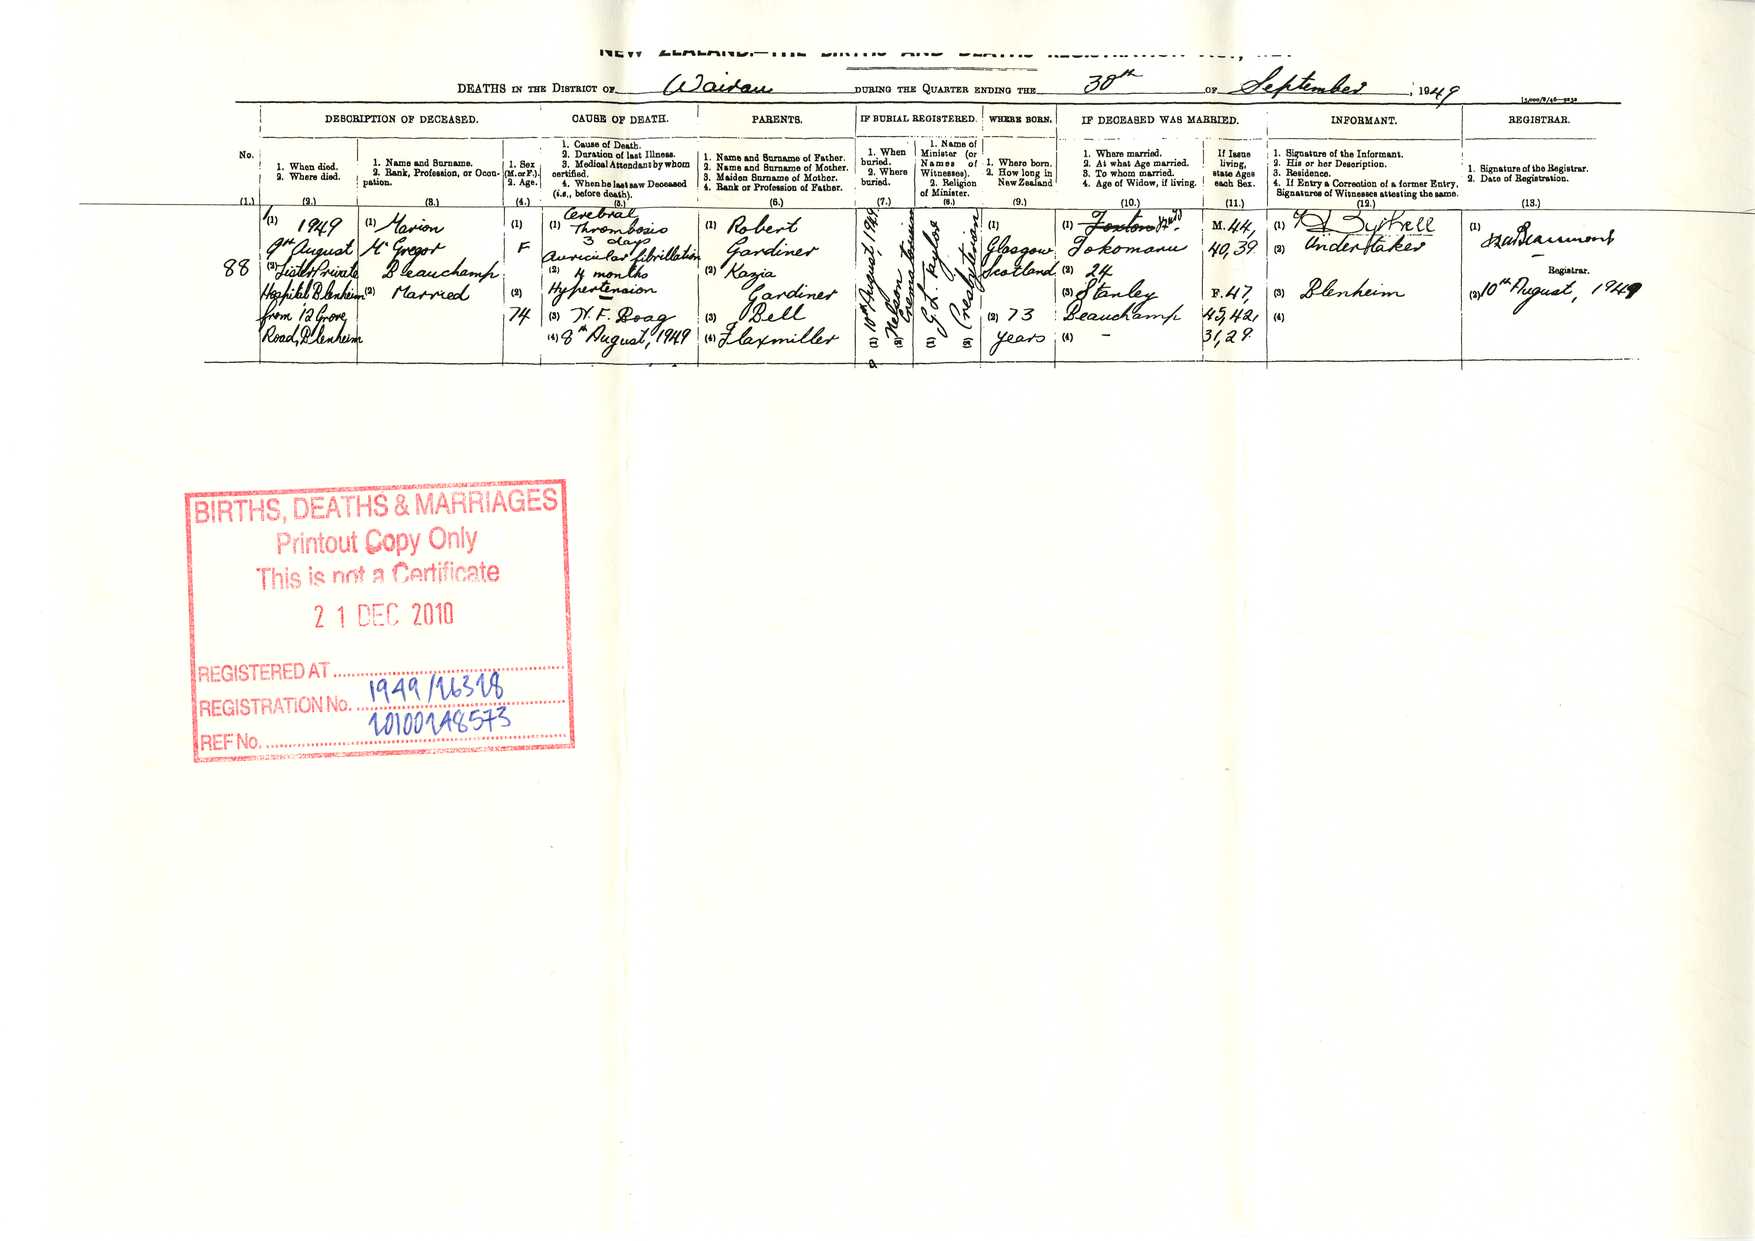 NEW ZEALAND.—THE BIRTHS AND DEATHS REGISTRATION ACT,
DEATHS IN THE DISTRICT OF Wairau DURING THE QUARTER ENDING THE 30th OF September, 1949
DESCRIPTION OF DECEASED. CAUSE OF DEATH. PARENTS. IF BURIAL REGISTERED. WHERE BORN. IF DECEASED WAS MARRIED. INFORMANT. REGISTRAR.
No.
1. When died.
2. Where died.
1. Name and Surname.
2. Rank, Profession, or Occu-
pation.
1. Sex
(M. or F.).
2. Age.
1. Cause of Death.
2. Duration of last Illness.
3. Medical Attendant by whom
certified.
4. When he last saw Deceased
(i.e., before death).
1. Name and Surname of Father.
2. Name and Surname of Mother.
3. Maiden Surname of Mother.
4. Rank or Profession of Father.
1. When
buried.
2. Where
buried.
1. Name of
Minister (or
Names of
Witnesses).
2. Religion
of Minister.
1. Where born.
2. How long in
New Zealand
1. Where married.
2. At what Age married.
3. To whom married.
4. Age of Widow, if living.
If Issue
living,
state Ages
each Sex.
1. Signature of the Informant.
2. His or her Description.
3. Residence.
4. If Entry a Correction of a former Entry,
Signatures of Witnesses attesting the same.
1. Signature of the Registrar.
2. Date of Registration.
(1.) (2.) (3.) (4.) (5.) (6.) (7.) (8.) (9.) (10.) (11.) (12.) (13.)
88
(1) 1949
9th August
(2) Private
Hospital Blenheim
from 12 Grove
Road, Blenheim
(1) Marion
Mc Gregor
Beauchamp
(2) Married
(1)
F
(2)
74
Cerebral
(1) Thrombosis
3 days
Auricular fibrillation
(2) 4 months
Hypertension
(3) W. F. Boag
(4) 8th August, 1949
(1) Robert
Gardiner
(2) Kazia
Gardiner
(3) Bell
(4) Flaxmiller
(1) 10th August, 1949
(2) Nelson
Crematorium
(1) G. L. Taylor
(2) Presbyterian
(1)
Glasgow
Scotland
(2) 73
years
(1) Foxton
Tokomaru
(2) 24
(3) Stanley
Beauchamp
(4) -
M. 44,
40, 39
F. 47,
45, 42,
31, 29
(1)
(2) Undertaker
(3) Blenheim
(4)
(1)
Beaumont
Registrar.
(2) 10th August, 1949
BIRTHS, DEATHS & MARRIAGES
Printout Copy Only
This is not a Certificate
21 DEC 2010
REGISTERED AT
REGISTRATION No. 1949/26328
REF No. 20100248573